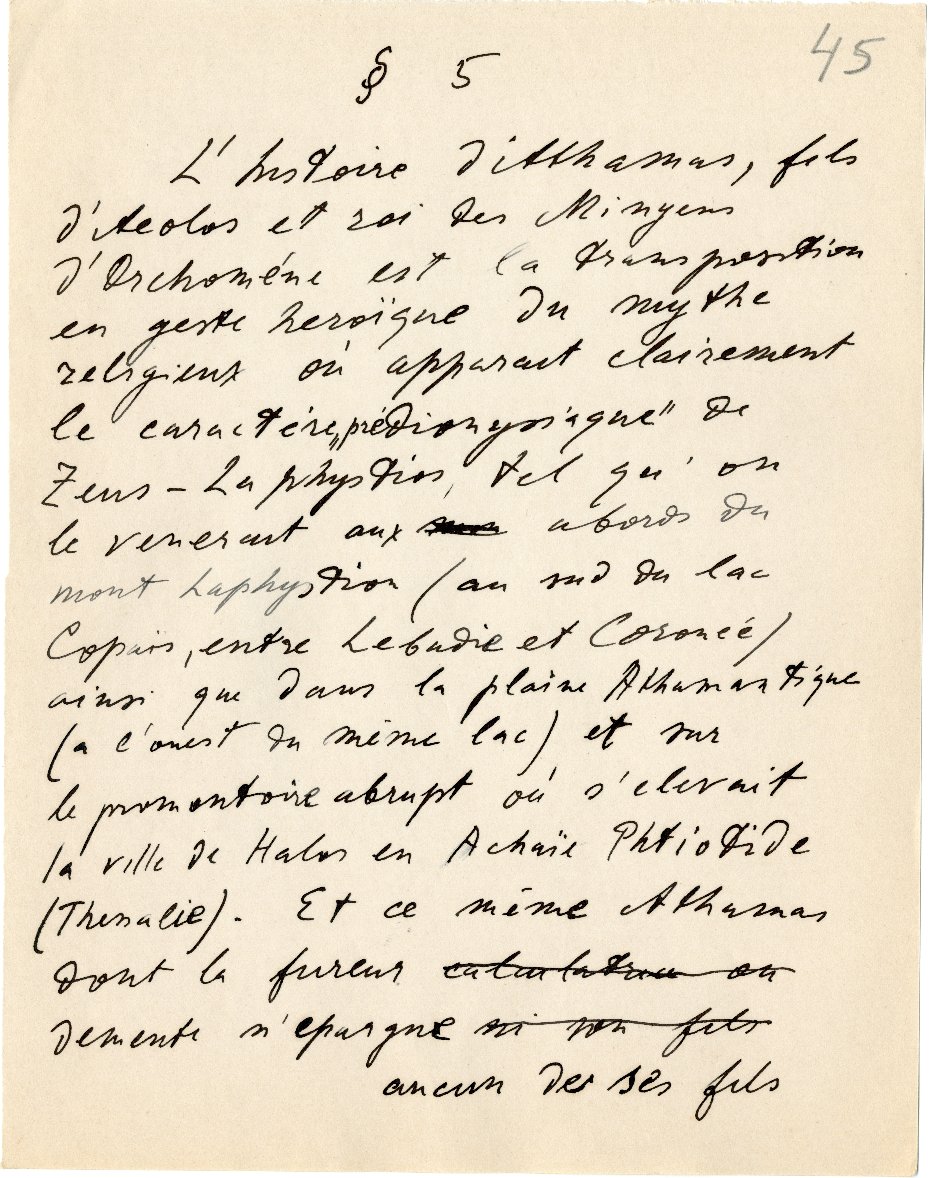 45
§ 5
L'histoire d'Athamas, fils
d'Aeolos et roi des Minyens
d'Orchomène est la transposition
en geste heroïque du mythe
religieux où apparait clairement
le caractère „prédionysiaque" de
Zeus - Laphystios, tel qu'on
le venerait aux abords du
mont Laphystion (au sud du lac
Copaïs, entre Lebadie et Coronée)
ainsi que dans la plaine Athamantique
(a l'ouest du même lac) et sur
le promontoire abrupt où s'elevait
la ville de Halos en Achaïe Phtiotide
(Thessalie). Et ce même Athamas
dont la fureur calculatrice ou
demente n'epargne ni son fils
aucun de ses fils